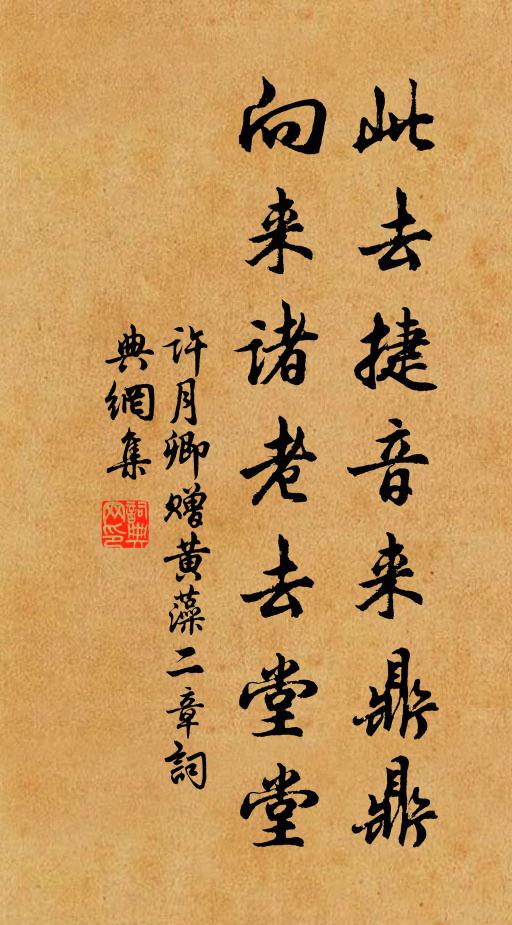 此去捷音来鼎鼎
向来诸老去堂堂
许月卿赠黄藻二章詞
典網集
詞典网印